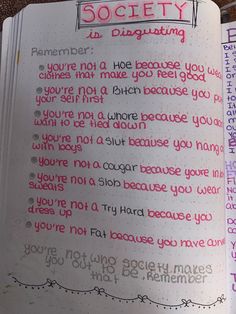 SOCIETY
is Disgusting
Remember:
you're not a Hoe because you wear
clothes that make you feel good
you're not a Bitch because you put
your self first
you're not a Whore because you
want to be tied down
you're not a Slut because you hang
with boys
you're not a cougar because you're in
you're not a Slob because you wear
sweats
you're not a Try Hard because you
dress up
you're not Fat because you have
you're not who society makes
you out to be, Remember
that